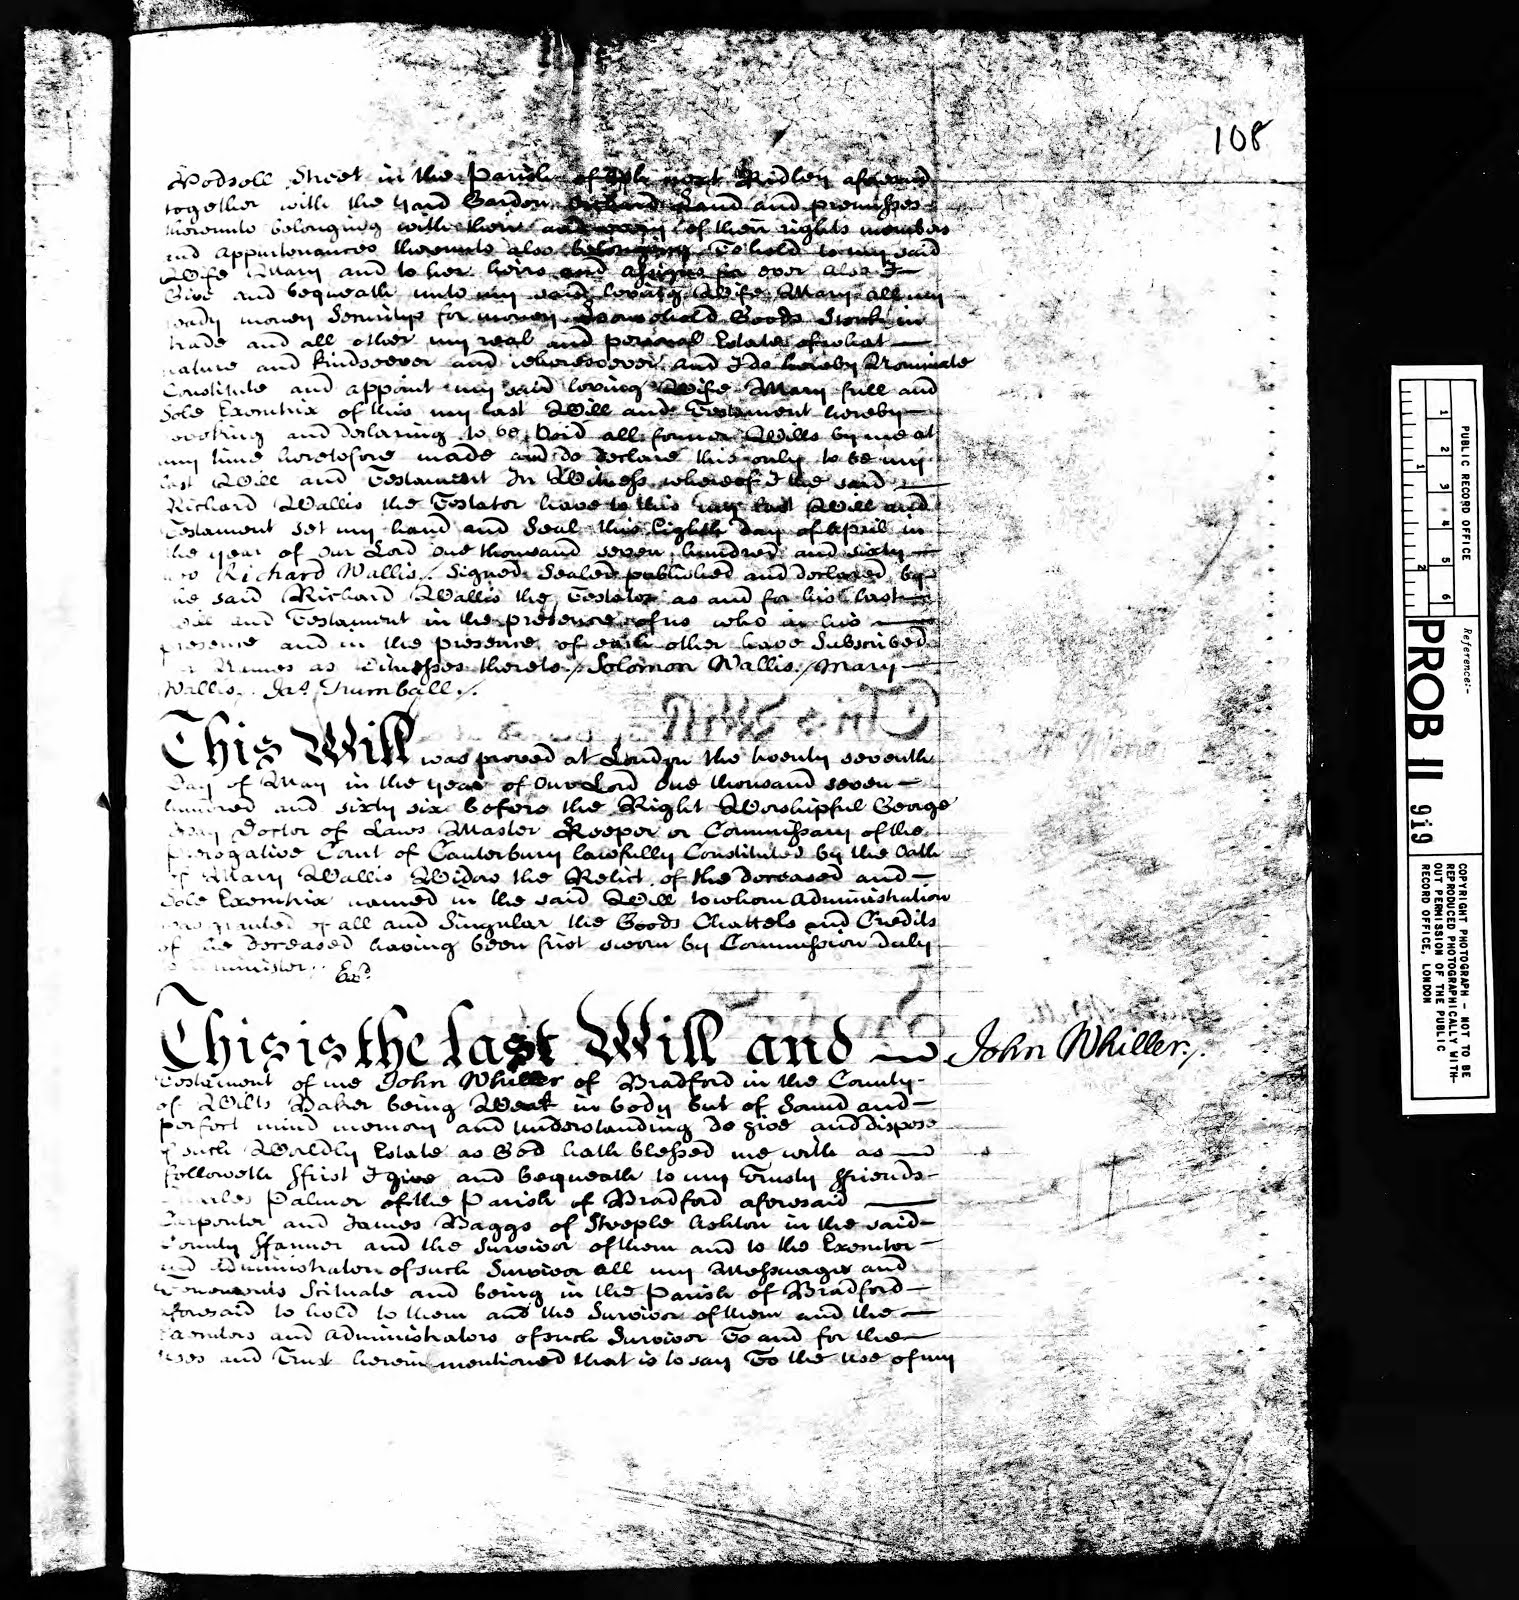 108
Street in the Parish of next Ridley aforesaid
together with the yard Garden Orchard Land and premisses
thereunto belonging with their and every of their rights members
and appurtenances thereunto also belonging To hold to my said
Wife Mary and to her heirs and assigns for ever also I
Give and bequeath unto my said loving Wife Mary all my
ready money Securitys for money Household Goods Stock in
trade and all other my real and personal Estate of what
nature and kindsoever and wheresoever and I do hereby Nominate
Constitute and appoint my said loving Wife Mary full and
Sole Executrix of this my last Will and Testament hereby
revoking and declaring to be Void all former Wills by me at
any time heretofore made and do declare this only to be my
last Will and Testament In Witness whereof I the said
Richard Wallis the Testator have to this my last Will and
Testament set my hand and Seal this Eighth day of April in
the year of Our Lord One thousand seven hundred and sixty
two Richard Wallis /. Signed Sealed published and declared by
the said Richard Wallis the Testator as and for his last
Will and Testament in the presence of us who in his
presence and in the presence of each other have Subscribed
our Names as Witnesses thereto /. Solomon Wallis / Mary
Wallis. Jas. Trumball /.
This Will was proved at London the twenty seventh
Day of May in the year of Our Lord One thousand seven
hundred and sixty six before the Right Worshipful George
Hay Doctor of Laws Master Keeper or Commissary of the
Prerogative Court of Canterbury lawfully Constituted by the Oath
of Mary Wallis Widow the Relict of the deceased and
Sole Executrix named in the said Will to whom Administration
was granted of all and Singular the Goods Chattels and Credits
of the deceased having been first sworn by Commission duly
to Administer. Exd.
This is the last Will and
John Whiller /.
Testament of me John Whiller of Bradford in the County
of Wilts Baker being Weak in body but of Sound and
perfect mind memory and understanding do give and dispose
of such Worldly Estate as God hath blessed me with as
followeth ffirst I give and bequeath to my Trusty ffriends
Charles Palmer of the Parish of Bradford aforesaid
Carpenter and James Baggs of Steeple Ashton in the said
County ffarmer and the Survivor of them and to the Executor
and Administrator of such Survivor all my Messuages and
Tenements Scituate and being in the Parish of Bradford
aforesaid to hold to them and the Survivor of them and the
Executors and Administrators of such Survivor To and for the
Uses and Trust herein mentioned that is to say To the Use of my
PUBLIC RECORD OFFICE
1 2 3 4 5 6
1 2
Reference:-
PROB 11 919
COPYRIGHT PHOTOGRAPH - NOT TO BE
REPRODUCED PHOTOGRAPHICALLY WITH-
OUT PERMISSION OF THE PUBLIC
RECORD OFFICE, LONDON